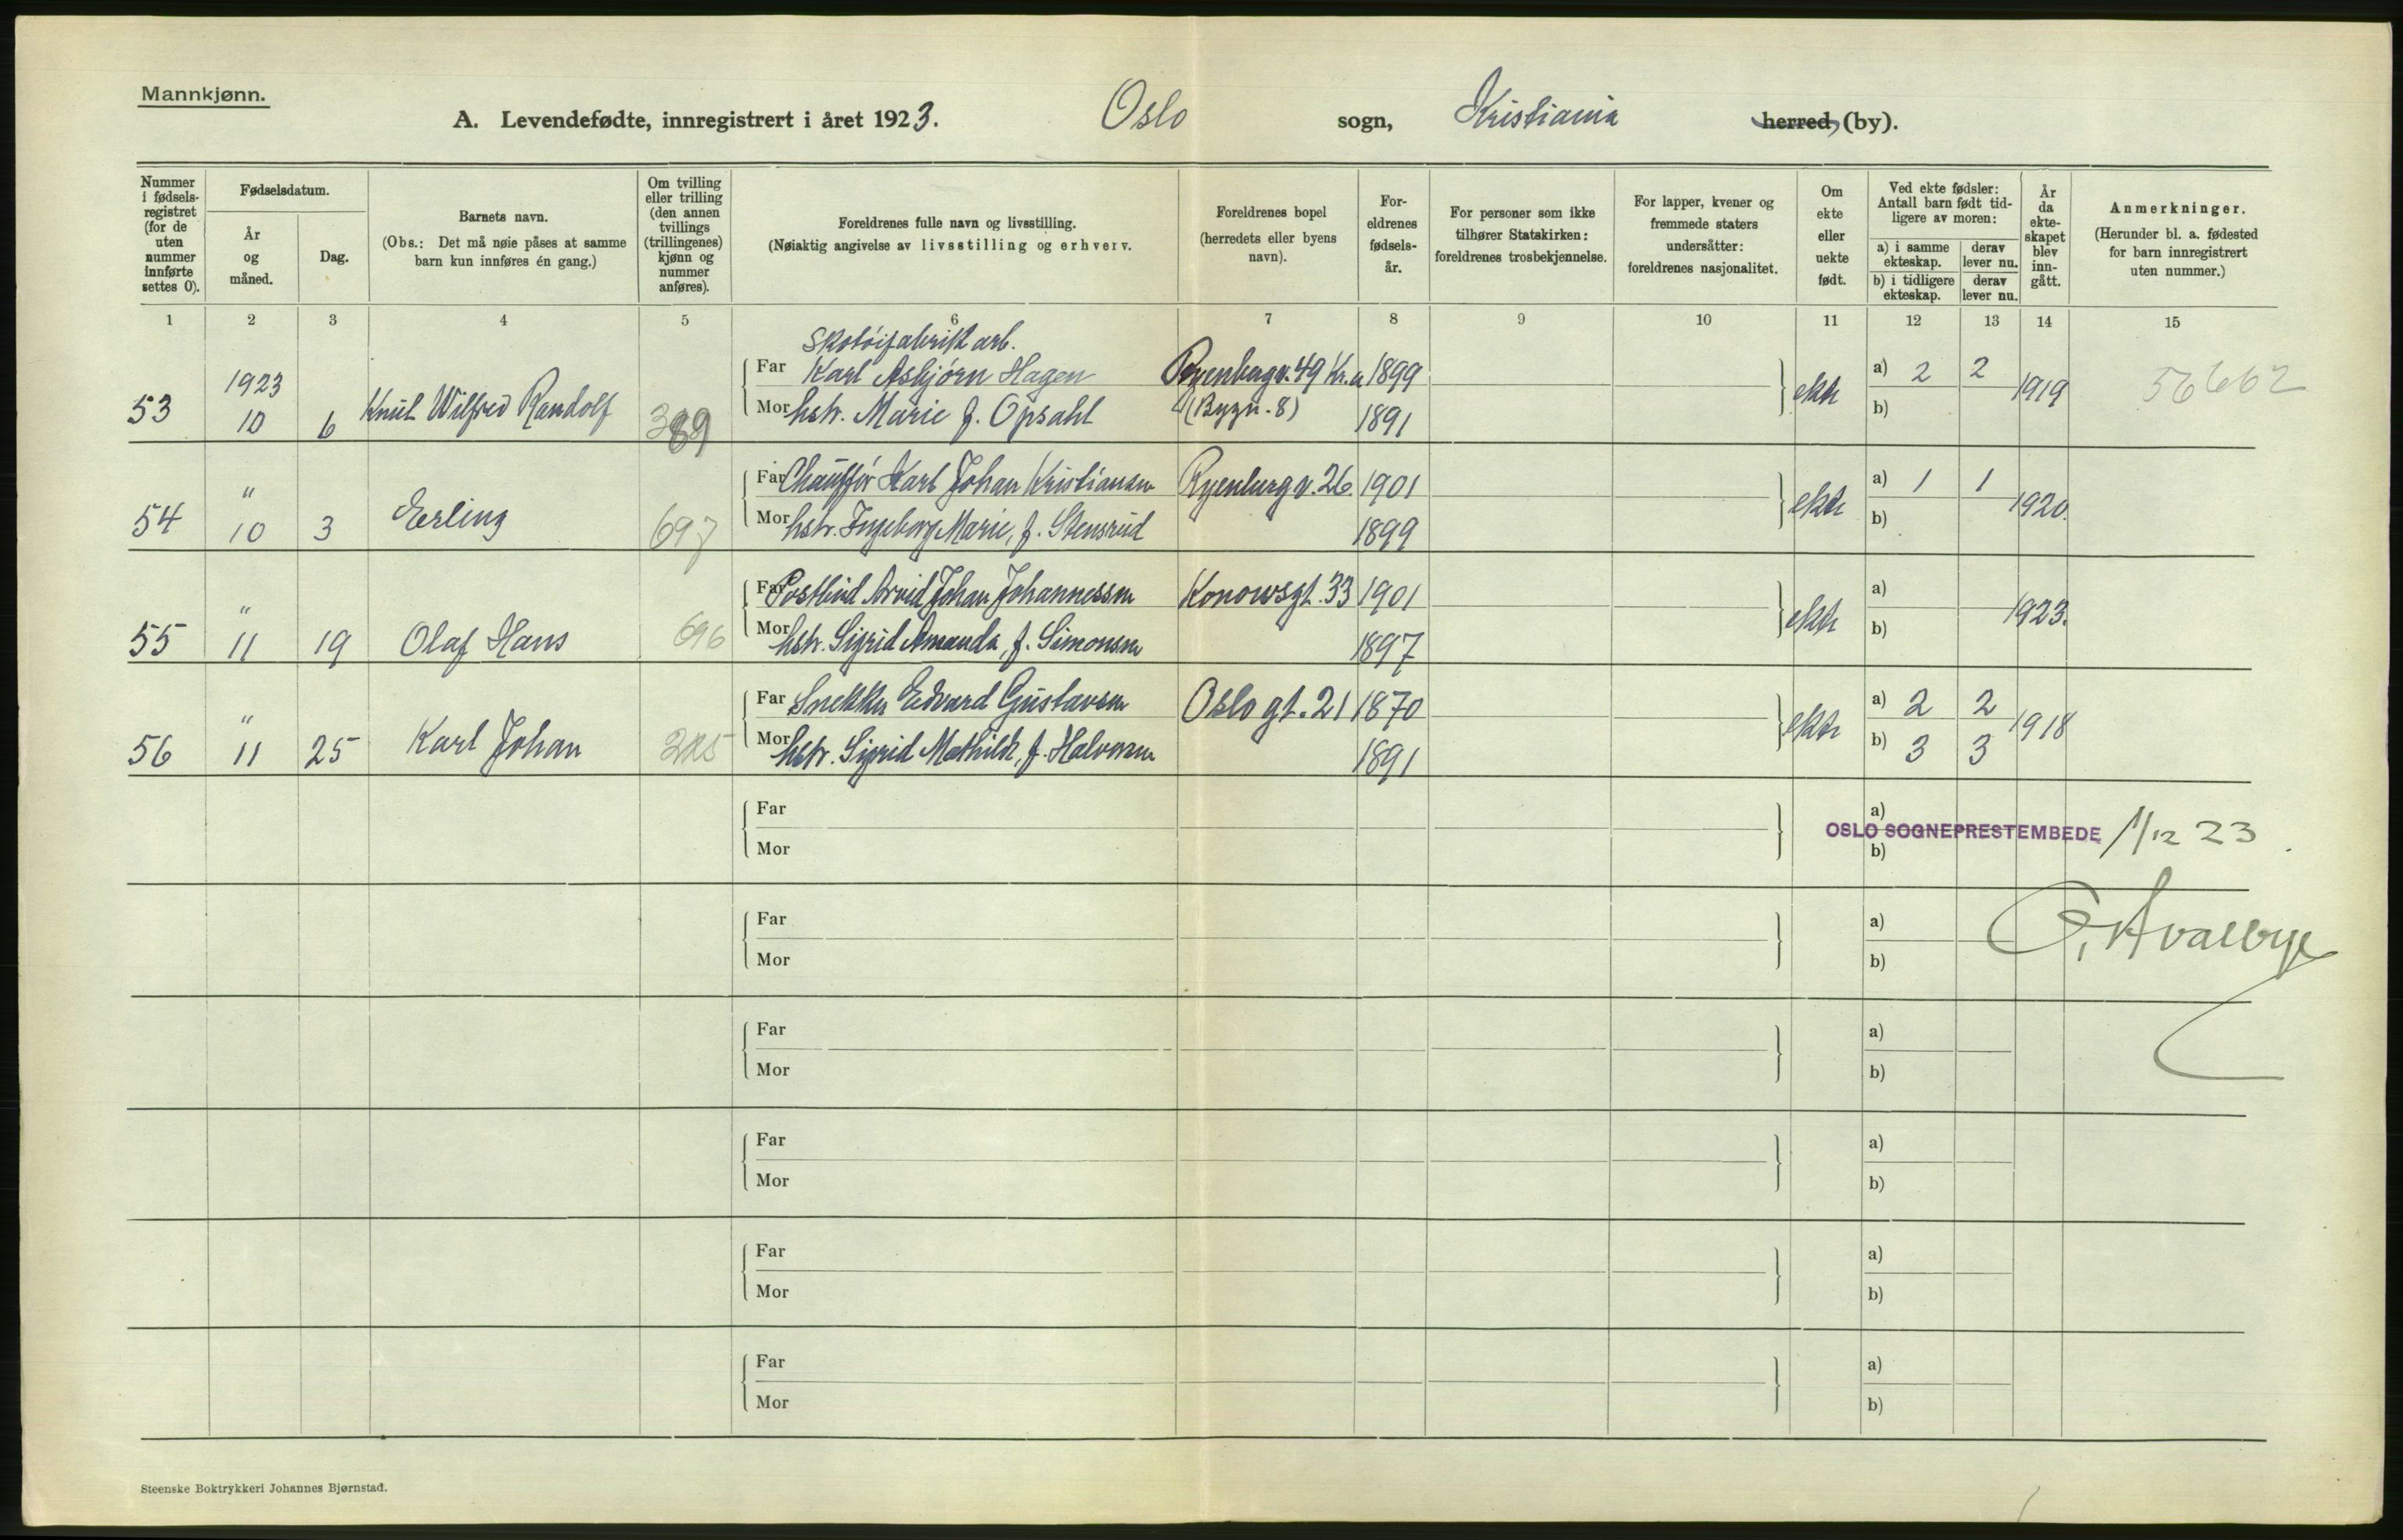 Mannkjønn.
A. Levendefødte, innregistrert i året 1923. Oslo sogn, Kristiania herred (by).
Nummer i fødsels-registret (for de uten nummer innførte settes 0).
Fødselsdatum.
År og måned.
Dag.
Barnets navn.
(Obs.: Det må nøie påses at samme barn kun innføres én gang.)
Om tvilling eller trilling (den annen tvillings (trillingenes) kjønn og nummer anføres).
Foreldrenes fulle navn og livsstilling.
(Nøiaktig angivelse av livsstilling og erhverv.
Foreldrenes bopel (herredets eller byens navn).
For-eldrenes fødsels-år.
For personer som ikke tilhører Statskirken: foreldrenes trosbekjennelse.
For lapper, kvener og fremmede staters undersåtter: foreldrenes nasjonalitet.
Om ekte eller uekte født.
Ved ekte fødsler: Antall barn født tid-ligere av moren:
a) i samme ekteskap. derav lever nu.
b) i tidligere ekteskap. derav lever nu.
År da ekte-skapet blev inn-gått.
Anmerkninger.
(Herunder bl. a. fødested for barn innregistrert uten nummer.)
1 2 3 4 5 6 7 8 9 10 11 12 13 14 15
Skotøifabrikk arb.
1923 Far Karl Asbjørn Hagen Ryenbergv. 49 Kr.a 1899 a) 2 2
53 10 6 Knut Wilfred Randolf 389 Mor hstr. Marie f. Opsahl (Bygn. 8) 1891 ekte b) 1919 56662
" Far Chauffør Karl Johan Kristiansen Ryenbergv. 26. 1901 a) 1 1
54 10 3 Erling 697 Mor hstr. Ingeborg Marie, f. Stensrud 1899 ekte b) 1920.
" Far Postbud Arvid Johan Johannessen Konowsgt. 33 1901 a)
55 11 19 Olaf Hans 696 Mor hstr. Sigrid Amanda, f. Simonsen 1897 ekte b) 1923.
" Far Snekker Edvard Gustavsen Oslo gt. 21 1870 a) 2 2
56 11 25 Karl Johan Mor hstr. Sigrid Mathilde, f. Halvorsen 1891 ekte b) 3 3 1918
Far a)
OSLO SOGNEPRESTEMBEDE 1/12 23
Mor b)
Far a)
Mor b)
Far a)
Mor b)
Far a)
Mor b)
Far a)
Mor b)
Far a)
Mor b)
Steenske Boktrykkeri Johannes Bjørnstad.